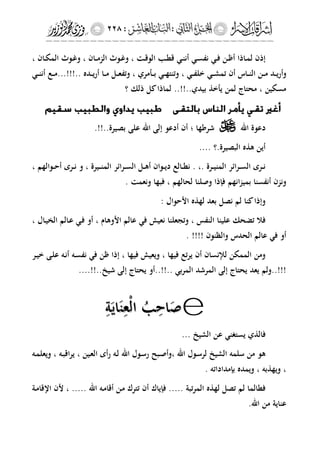 إشراقات الإسراء الجزء الثاني : الباب الخامس : ٢٢٨ :
إذن لماذا أظن في نفسي أنني قطب الوقت ، وغوث الزمان ، وغوث المكان ،
وأريد من الناس أن تمشي خلفي ، وتنتهي بأمري ، وتفعل ما أريده ..!!!...مع أنني
مسكين ، محتاج لمن يأخذ بيدي..!!.. لماذا كل ذلك ؟
أغير تقي يأمر الناس بالتقى طبيب يداوي والطبيب سقيم
دعوة الله شرطها ؛ أن أدعو إلى الله على بصيرة..!!.
أين هذه البصيرة.؟ ....
نرى السرائر المنيرة .. نطالع ديوان أهل السرائر المنيرة ، و نرى أحوالهم ،
ونزن أنفسنا بميزانهم فإذا وصلنا لحالهم ، فبها ونعمت .
وإذا كنا لم نصل بعد لهذه الأحوال :
فلا تضحك علينا النفس ، وتجعلنا نعيش في عالم الأوهام ، أو في عالم الخيال ،
أو في عالم الحدس والظنون !!!! .
ومن الممكن للإنسان أن يرتع فيها ، ويعيش فيها ، إذا ظن في نفسه أنه على خير
!!!..ولم يعد يحتاج إلى المرشد المربي ..!!..أو يحتاج إلى شيخ..!!....
صاحب العناية
فالذي يستغني عن الشيخ ...
هو من سلمه الشيخ لرسول الله ،وأصبح رسول الله له رأى العين ، يراقبه ، ويعلمه
، ويهذبه ، ويمده بإمداداته .
فطالما لم تصل لهذه المرتبة ..... فإياك أن تترك من أقامه الله ..... ، لأن الإقامة
عناية من الله.